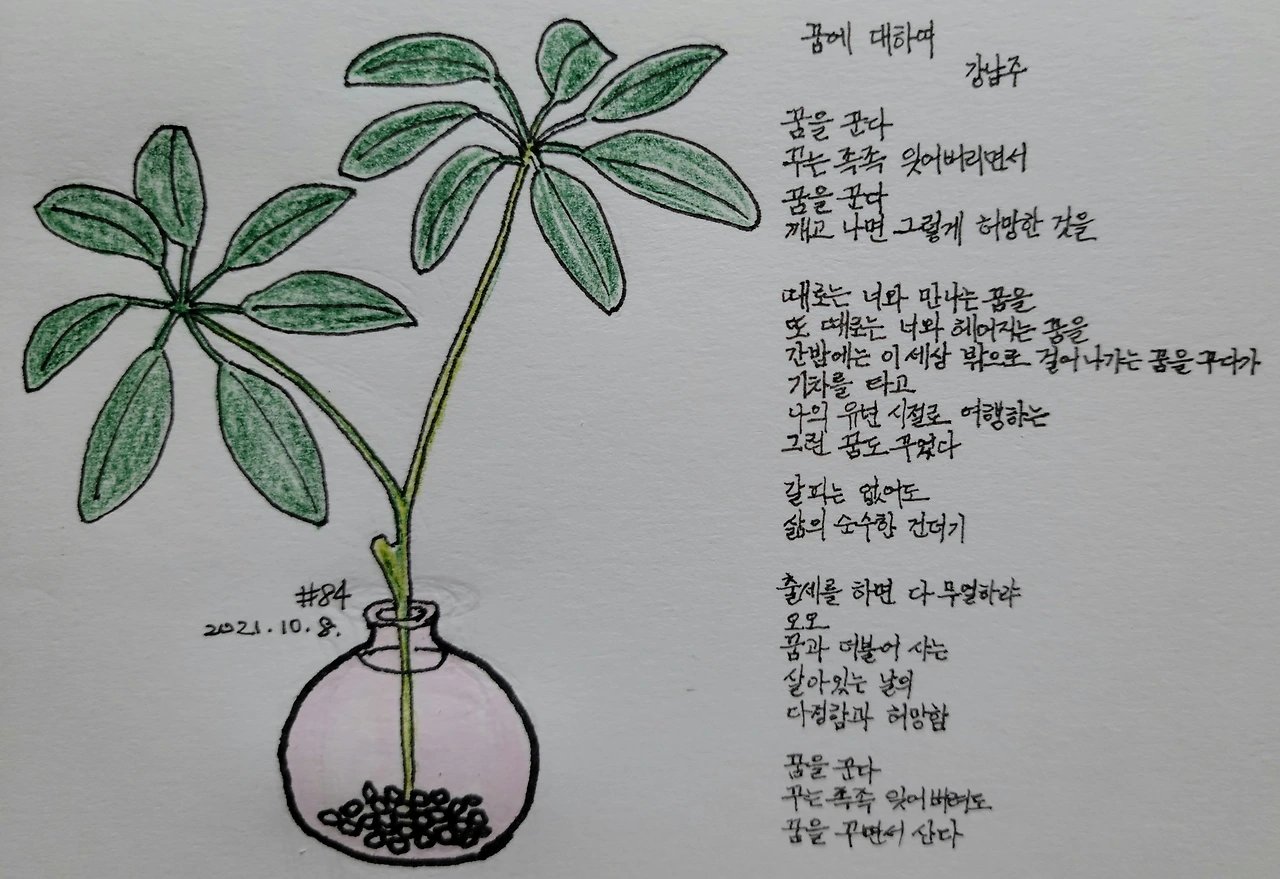 꿈에 대하여
강남주
꿈을 꾼다
꾸는 족족 잊어버리면서
꿈을 꾼다
깨고 나면 그렇게 허망한 것을
때로는 너와 만나는 꿈을
또 때로는 너와 헤어지는 꿈을
간밤에는 이 세상 밖으로 걸어나가는 꿈을 꾸다가
기차를 타고
나의 유년 시절로 여행하는
그런 꿈도 꾸었다
갈피는 없어도
삶의 순수한 건더기
출세를 하면 다 무얼하랴
오오
꿈과 더불어 사는
살아있는 날의
다정함과 허망함
꿈을 꾼다
꾸는 족족 잊어버려도
꿈을 꾸면서 산다
#84
2021.10.8.